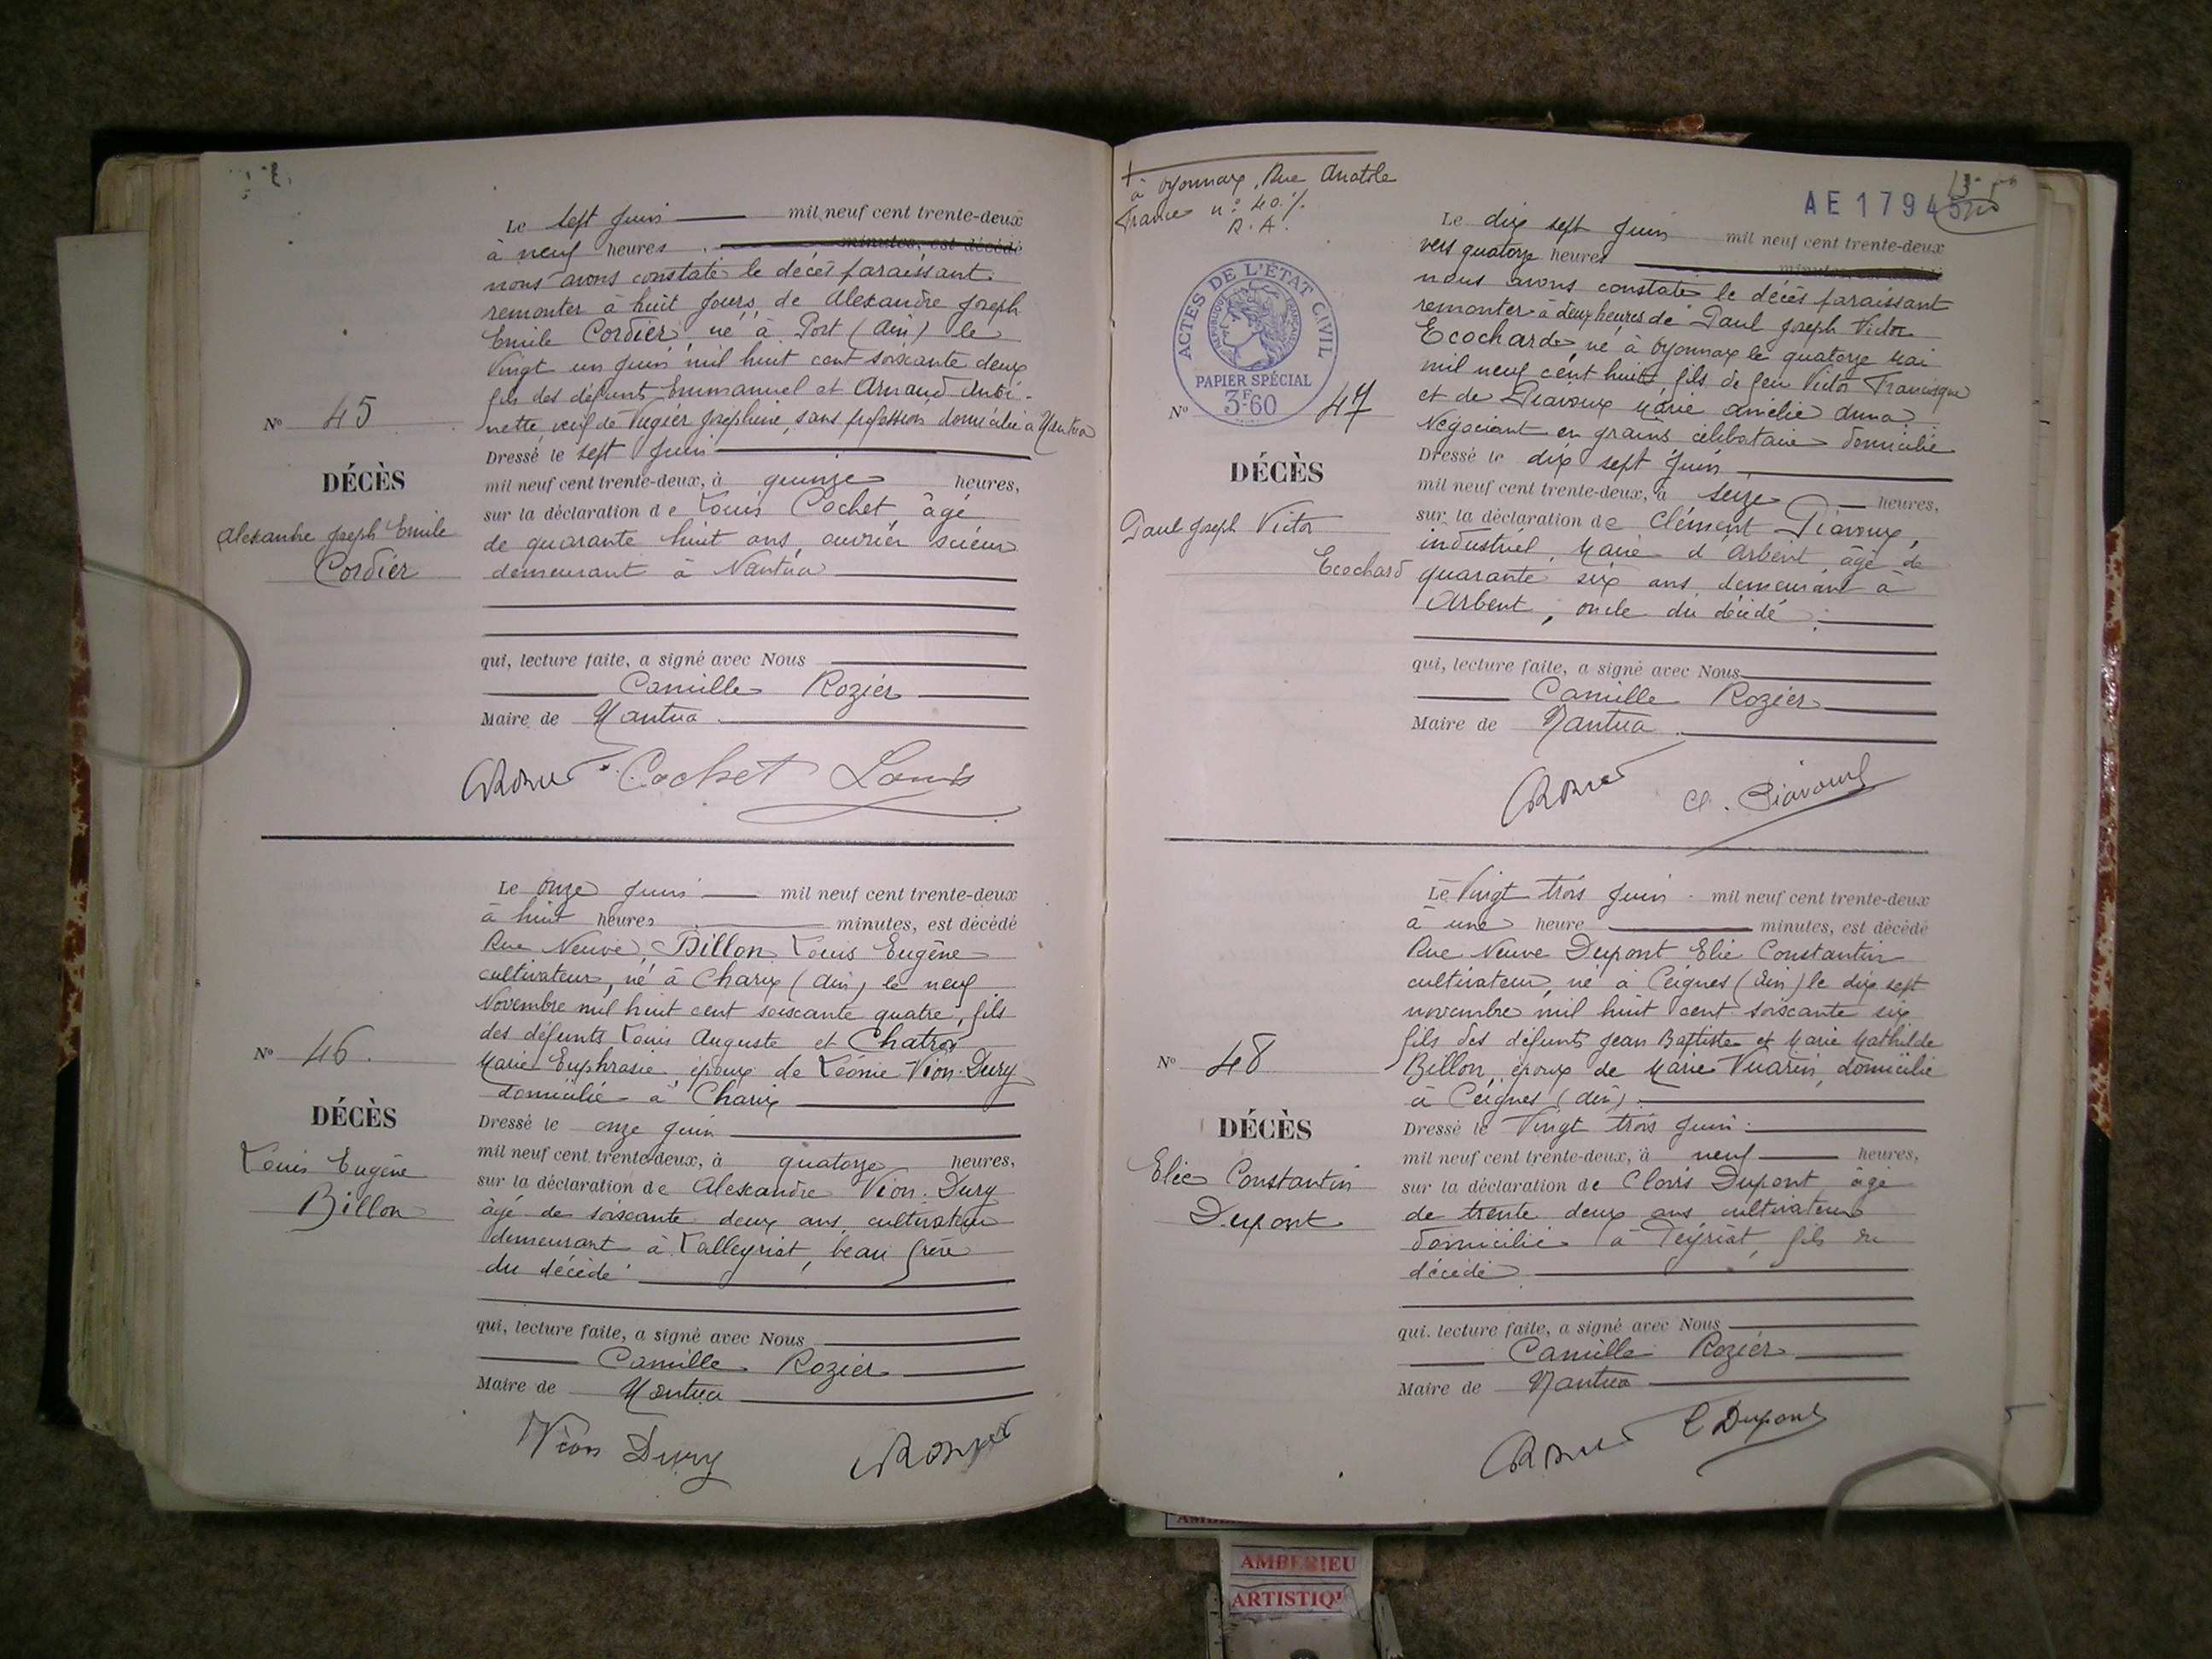 Le sept Juin mil neuf cent trente-deux
à neuf heures minutes, est décédé
nous avons constaté le décès paraissant
remonter à huit Jours, de Alexandre Joseph
Emile Cordier, né à Port (Ain) le
Vingt un Juin mil huit cent soixante deux
fils des défunts Emmanuel et Arnaud Antoi-
nette, veuf de Vugier Joséphine, sans profession domicilié à Nantua
Nº 45
Dressé le sept Juin
DÉCÈS
mil neuf cent trente-deux, à quinze heures,
sur la déclaration de Louis Cochet âgé
Alexandre Joseph Emile
de quarante huit ans, ouvrier scieur
Cordier
demeurant à Nantua
qui, lecture faite, a signé avec Nous
Camille Rozier
Maire de Nantua
Cochet Louis
Le onze Juin mil neuf cent trente-deux
à huit heures minutes, est décédé
Rue Neuve, Billon Louis Eugène
cultivateur, né à Charix (Ain) le neuf
Novembre mil huit cent soixante quatre, fils
des défunts Louis Auguste et Chatron
Nº 46
Marie Euphrasie, époux de Léonie Vion-Dury
domicilié à Charix
DÉCÈS
Dressé le onze Juin
mil neuf cent trente-deux, à quatorze heures,
Louis Eugène
sur la déclaration de Alexandre Vion-Dury
Billon
âgé de soixante deux ans cultivateur
demeurant à Lalleyriat, beau frère
du décédé
qui, lecture faite, a signé avec Nous
Camille Rozier
Maire de Nantua
Vion Dury
+ à Oyonnax, Rue Anatole
France nº 40 %
R. A.
AE 1794
ACTES DE L'ÉTAT CIVIL
RÉPUBLIQUE FRANÇAISE
PAPIER SPÉCIAL
3F60
Le dix sept Juin mil neuf cent trente-deux
vers quatorze heures minutes, est décédé
nous avons constaté le décès paraissant
remonter à deux heures de Paul Joseph Victor
Ecochard, né à Oyonnax le quatorze Mai
mil neuf cent huit, fils de feu Victor Francisque
Nº 47
et de Piavoux Marie Amélie Anna,
Négociant en grains célibataire domicilié
DÉCÈS
Dressé le dix sept Juin
mil neuf cent trente-deux, à seize heures,
Paul Joseph Victor
sur la déclaration de Clément Piavoux,
industriel, Maire d'Arbent, âgé de
Ecochard
quarante six ans, demeurant à
Arbent, oncle du décédé
qui, lecture faite, a signé avec Nous
Camille Rozier
Maire de Nantua
Cl. Piavoux
Le Vingt trois Juin mil neuf cent trente-deux
à une heure minutes, est décédé
Rue Neuve Dupont Elie Constantin
cultivateur, né à Ceignes (Ain) le dix sept
novembre mil huit cent soixante six
fils des défunts Jean Baptiste et Marie Mathilde
Nº 48
Billon, époux de Marie Vuarin, domicilié
à Ceignes (Ain)
DÉCÈS
Dressé le Vingt trois Juin
mil neuf cent trente-deux, à neuf heures,
Elie Constantin
sur la déclaration de Clovis Dupont âgé
Dupont
de trente deux ans cultivateur
domicilié à Peyriat, fils du
décédé
qui, lecture faite, a signé avec Nous
Camille Rozier
Maire de Nantua
C Dupont
AMBERIEU
ARTISTIQU